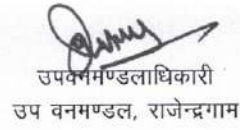 उपवनमण्डलाधिकारी
उप वनमण्डल, राजेन्द्रगाम